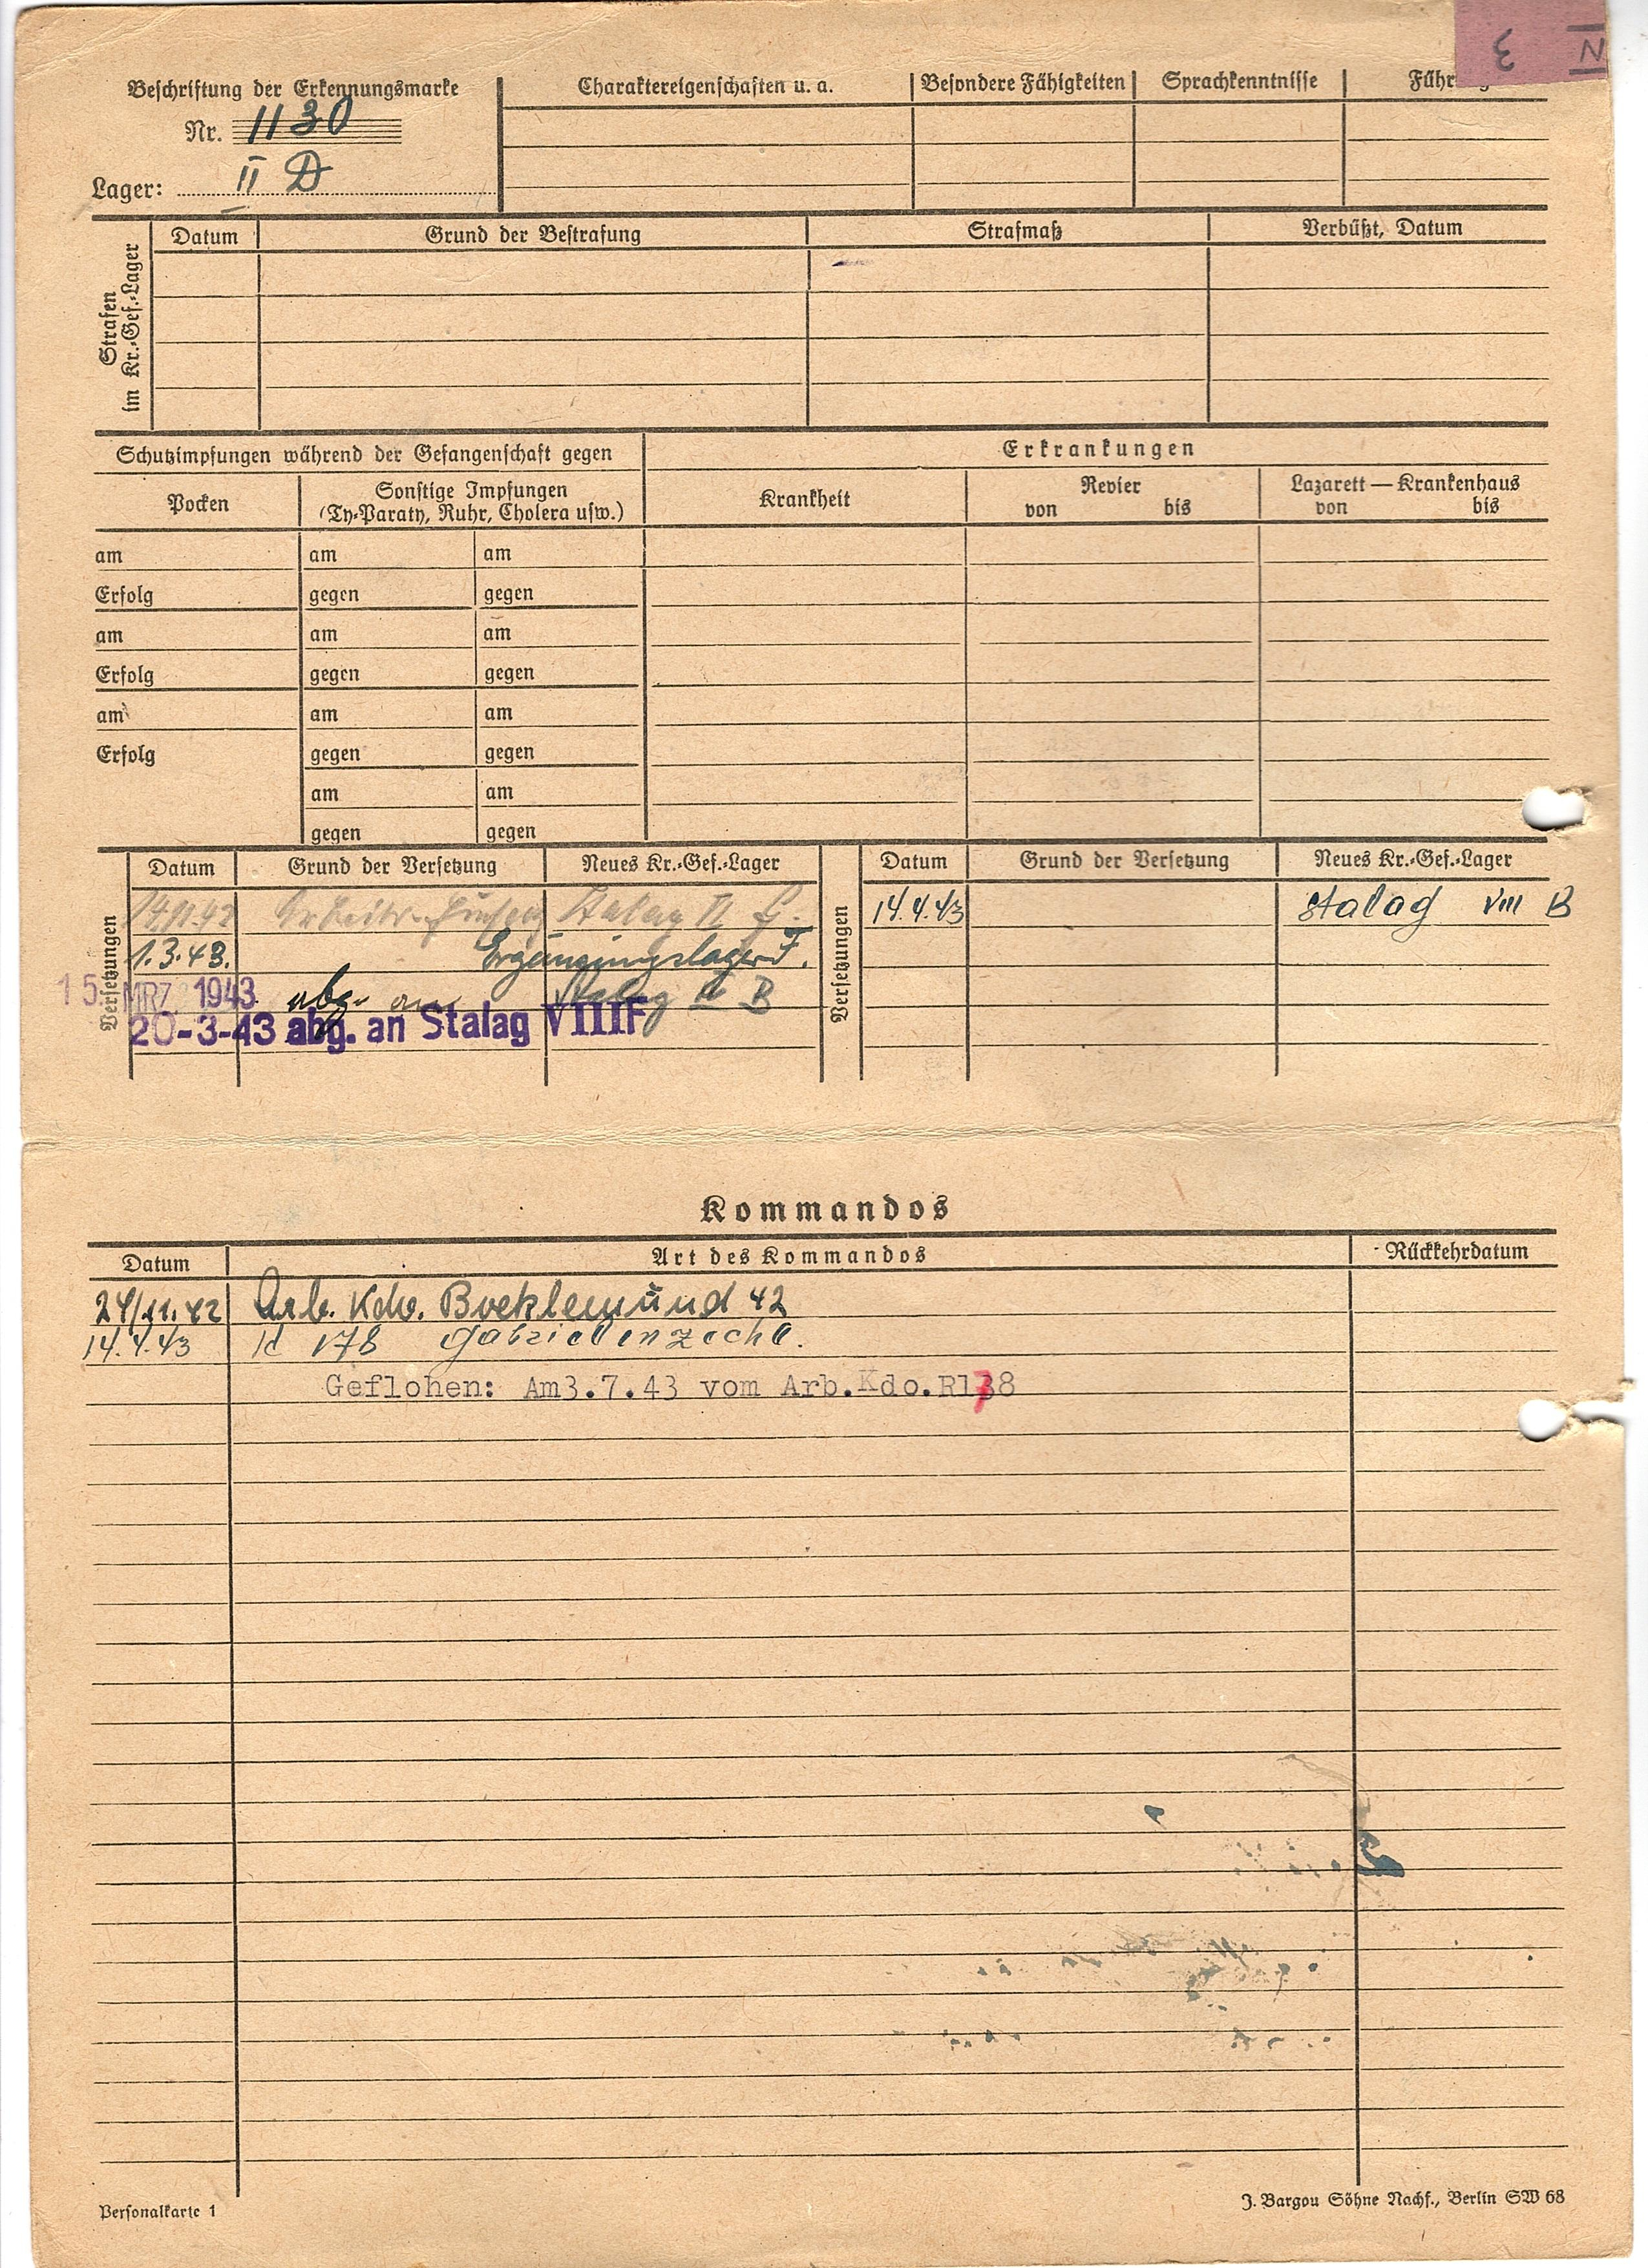 3 N
Beschriftung der Erkennungsmarke
Nr. 1130
Lager: II D
Charaktereigenschaften u. a. Besondere Fähigkeiten Sprachkenntnisse Führ
Strafen im Kr.-Gef.-Lager
Datum Grund der Bestrafung Strafmaß Verbüßt, Datum
Schutzimpfungen während der Gefangenschaft gegen
Erkrankungen
Pocken
Sonstige Impfungen
(Ty-Paraty, Ruhr, Cholera usw.)
Krankheit
Revier
von bis
Lazarett — Krankenhaus
von bis
am am am
Erfolg gegen gegen
am am am
Erfolg gegen gegen
am am am
Erfolg gegen gegen
am am
gegen gegen
Versetzungen
Datum Grund der Versetzung Neues Kr.-Gef.-Lager
14.11.42 Stalag II
1.3.43. Ergänzungslager F.
15. MRZ. 1943 abg. an Stalag II B
20-3-43 abg. an Stalag VIIIF
Versetzungen
Datum Grund der Versetzung Neues Kr.-Gef.-Lager
14.4.43 Stalag VIII B
Kommandos
Datum Art des Kommandos Rückkehrdatum
24/11.42 Arb. Kdo. 42
14.4.43 178 Gabrielenzeche.
Geflohen: Am3.7.43 vom Arb.Kdo.R178
Personalkarte 1
J. Bargou Söhne Nachf., Berlin SW 68